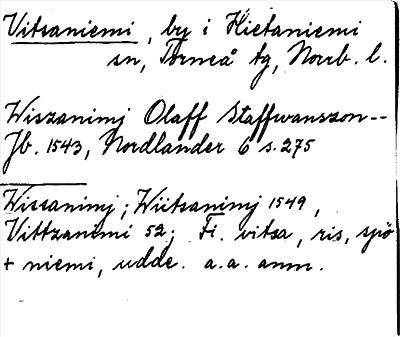 Vitsaniemi, by i Hietaniemi
sn, Torneå tg, Norrb. l.
Wiszanimj Olaff Staffwanszon--
Jb. 1543, Nordlander 6 s. 275
Wissanimj; Wiitsanimj 1549,
Vittzanemi 52; Fi. vitsa, ris, spö
+ niemi, udde. a.a. anm.